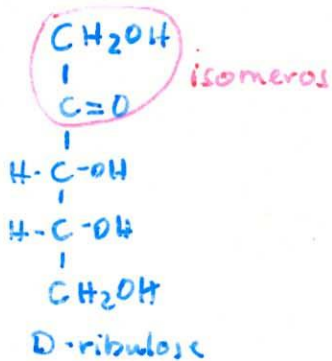 CH2OH
isomeros
C=O
H-C-OH
H-C-OH
CH2OH
D-ribulose